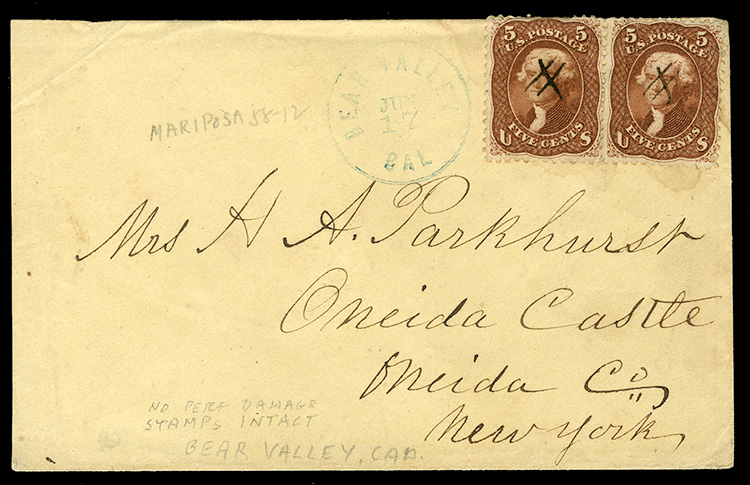 BEAR VALLEY
JUN
17
CAL
5 5
U.S. POSTAGE
FIVE CENTS
U S
5 5
U.S. POSTAGE
FIVE CENTS
U S
MARIPOSA 58-12
Mrs H A. Parkhurst
Oneida Castle
Oneida Co.
New York
NO PERF DAMAGE
STAMPS INTACT
BEAR VALLEY, CAL.